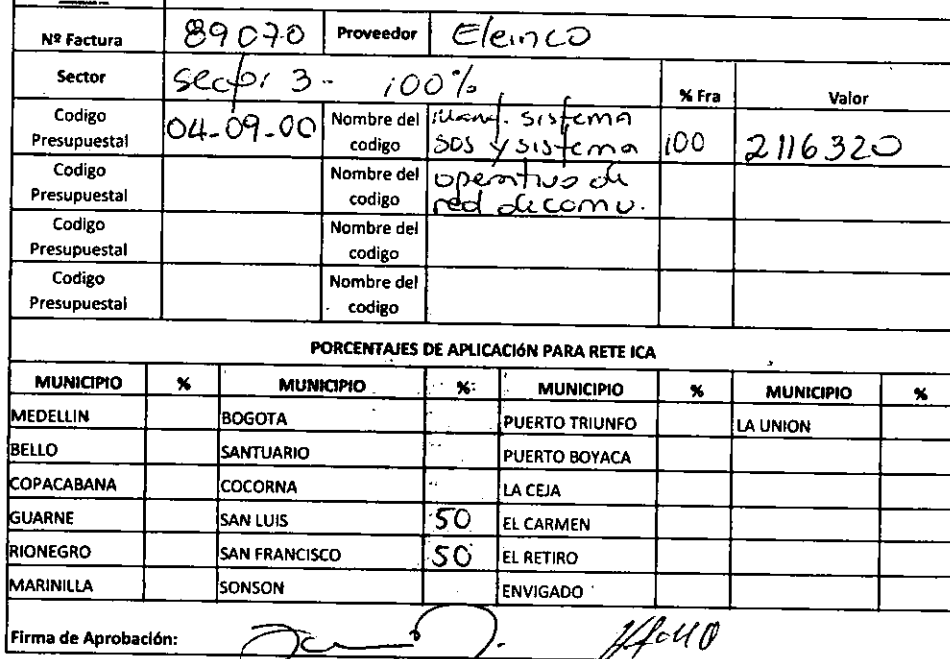 Nº Factura 89070 Proveedor Eleinco
Sector Sector 3 - 100% % Fra Valor
Codigo Presupuestal 04-09-00 Nombre del codigo Mant. sistema SOS y sistema 100 2116320
Codigo Presupuestal Nombre del codigo operativo de red de comu.
Codigo Presupuestal Nombre del codigo
Codigo Presupuestal Nombre del codigo
PORCENTAJES DE APLICACIÓN PARA RETE ICA
MUNICIPIO % MUNICIPIO % MUNICIPIO % MUNICIPIO %
MEDELLIN BOGOTA PUERTO TRIUNFO LA UNION
BELLO SANTUARIO PUERTO BOYACA
COPACABANA COCORNA LA CEJA
GUARNE SAN LUIS 50 EL CARMEN
RIONEGRO SAN FRANCISCO 50 EL RETIRO
MARINILLA SONSON ENVIGADO
Firma de Aprobación: